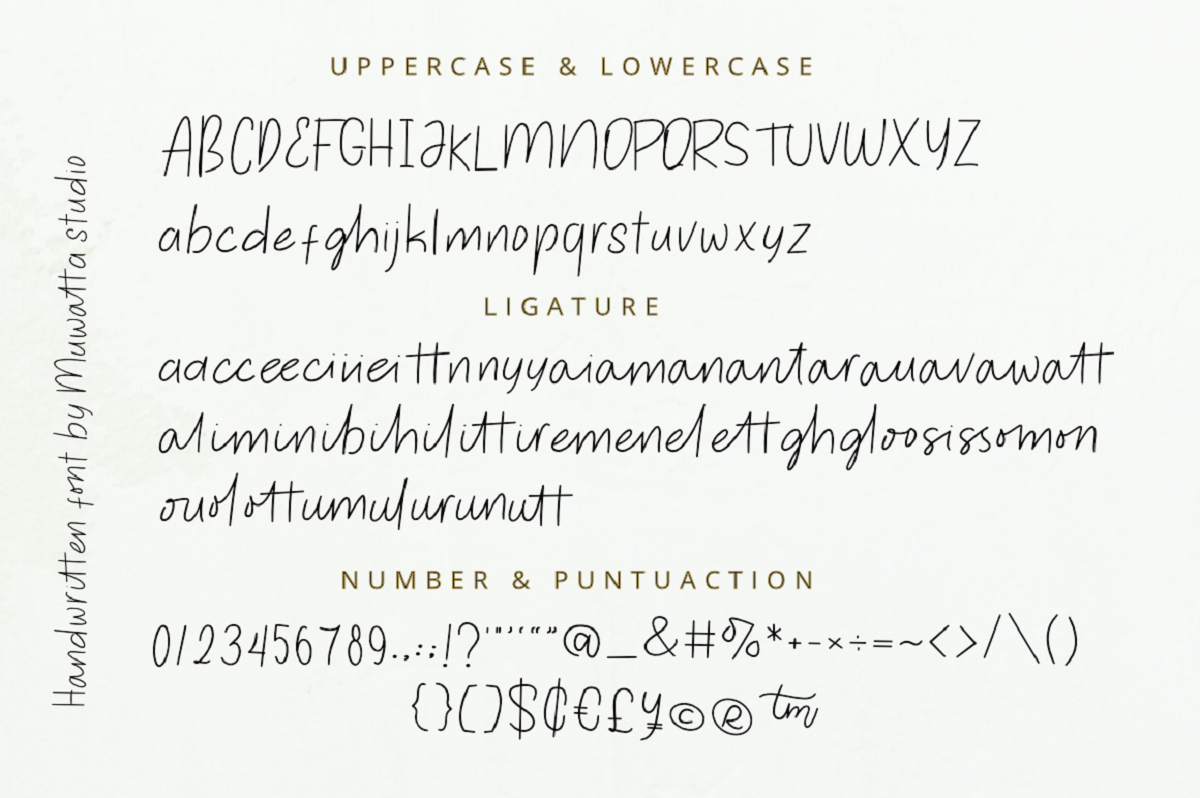 UPPERCASE & LOWERCASE
ABCDEFGHIJKLMNOPQRSTUVWXYZ
abcdefghijklmnopqrstuvwxyz
LIGATURE
aacceeciiieittnnyyaiamanantarauavawatt
aliminibihilittiremenelettghgloosissomon
ouolottumulurunutt
NUMBER & PUNTUACTION
0123456789.,:;!?'"’‘“”@_&#%*+-×÷=~<>/\()
{}()$¢€£¥©®™
Handwritten font by Muwatta studio